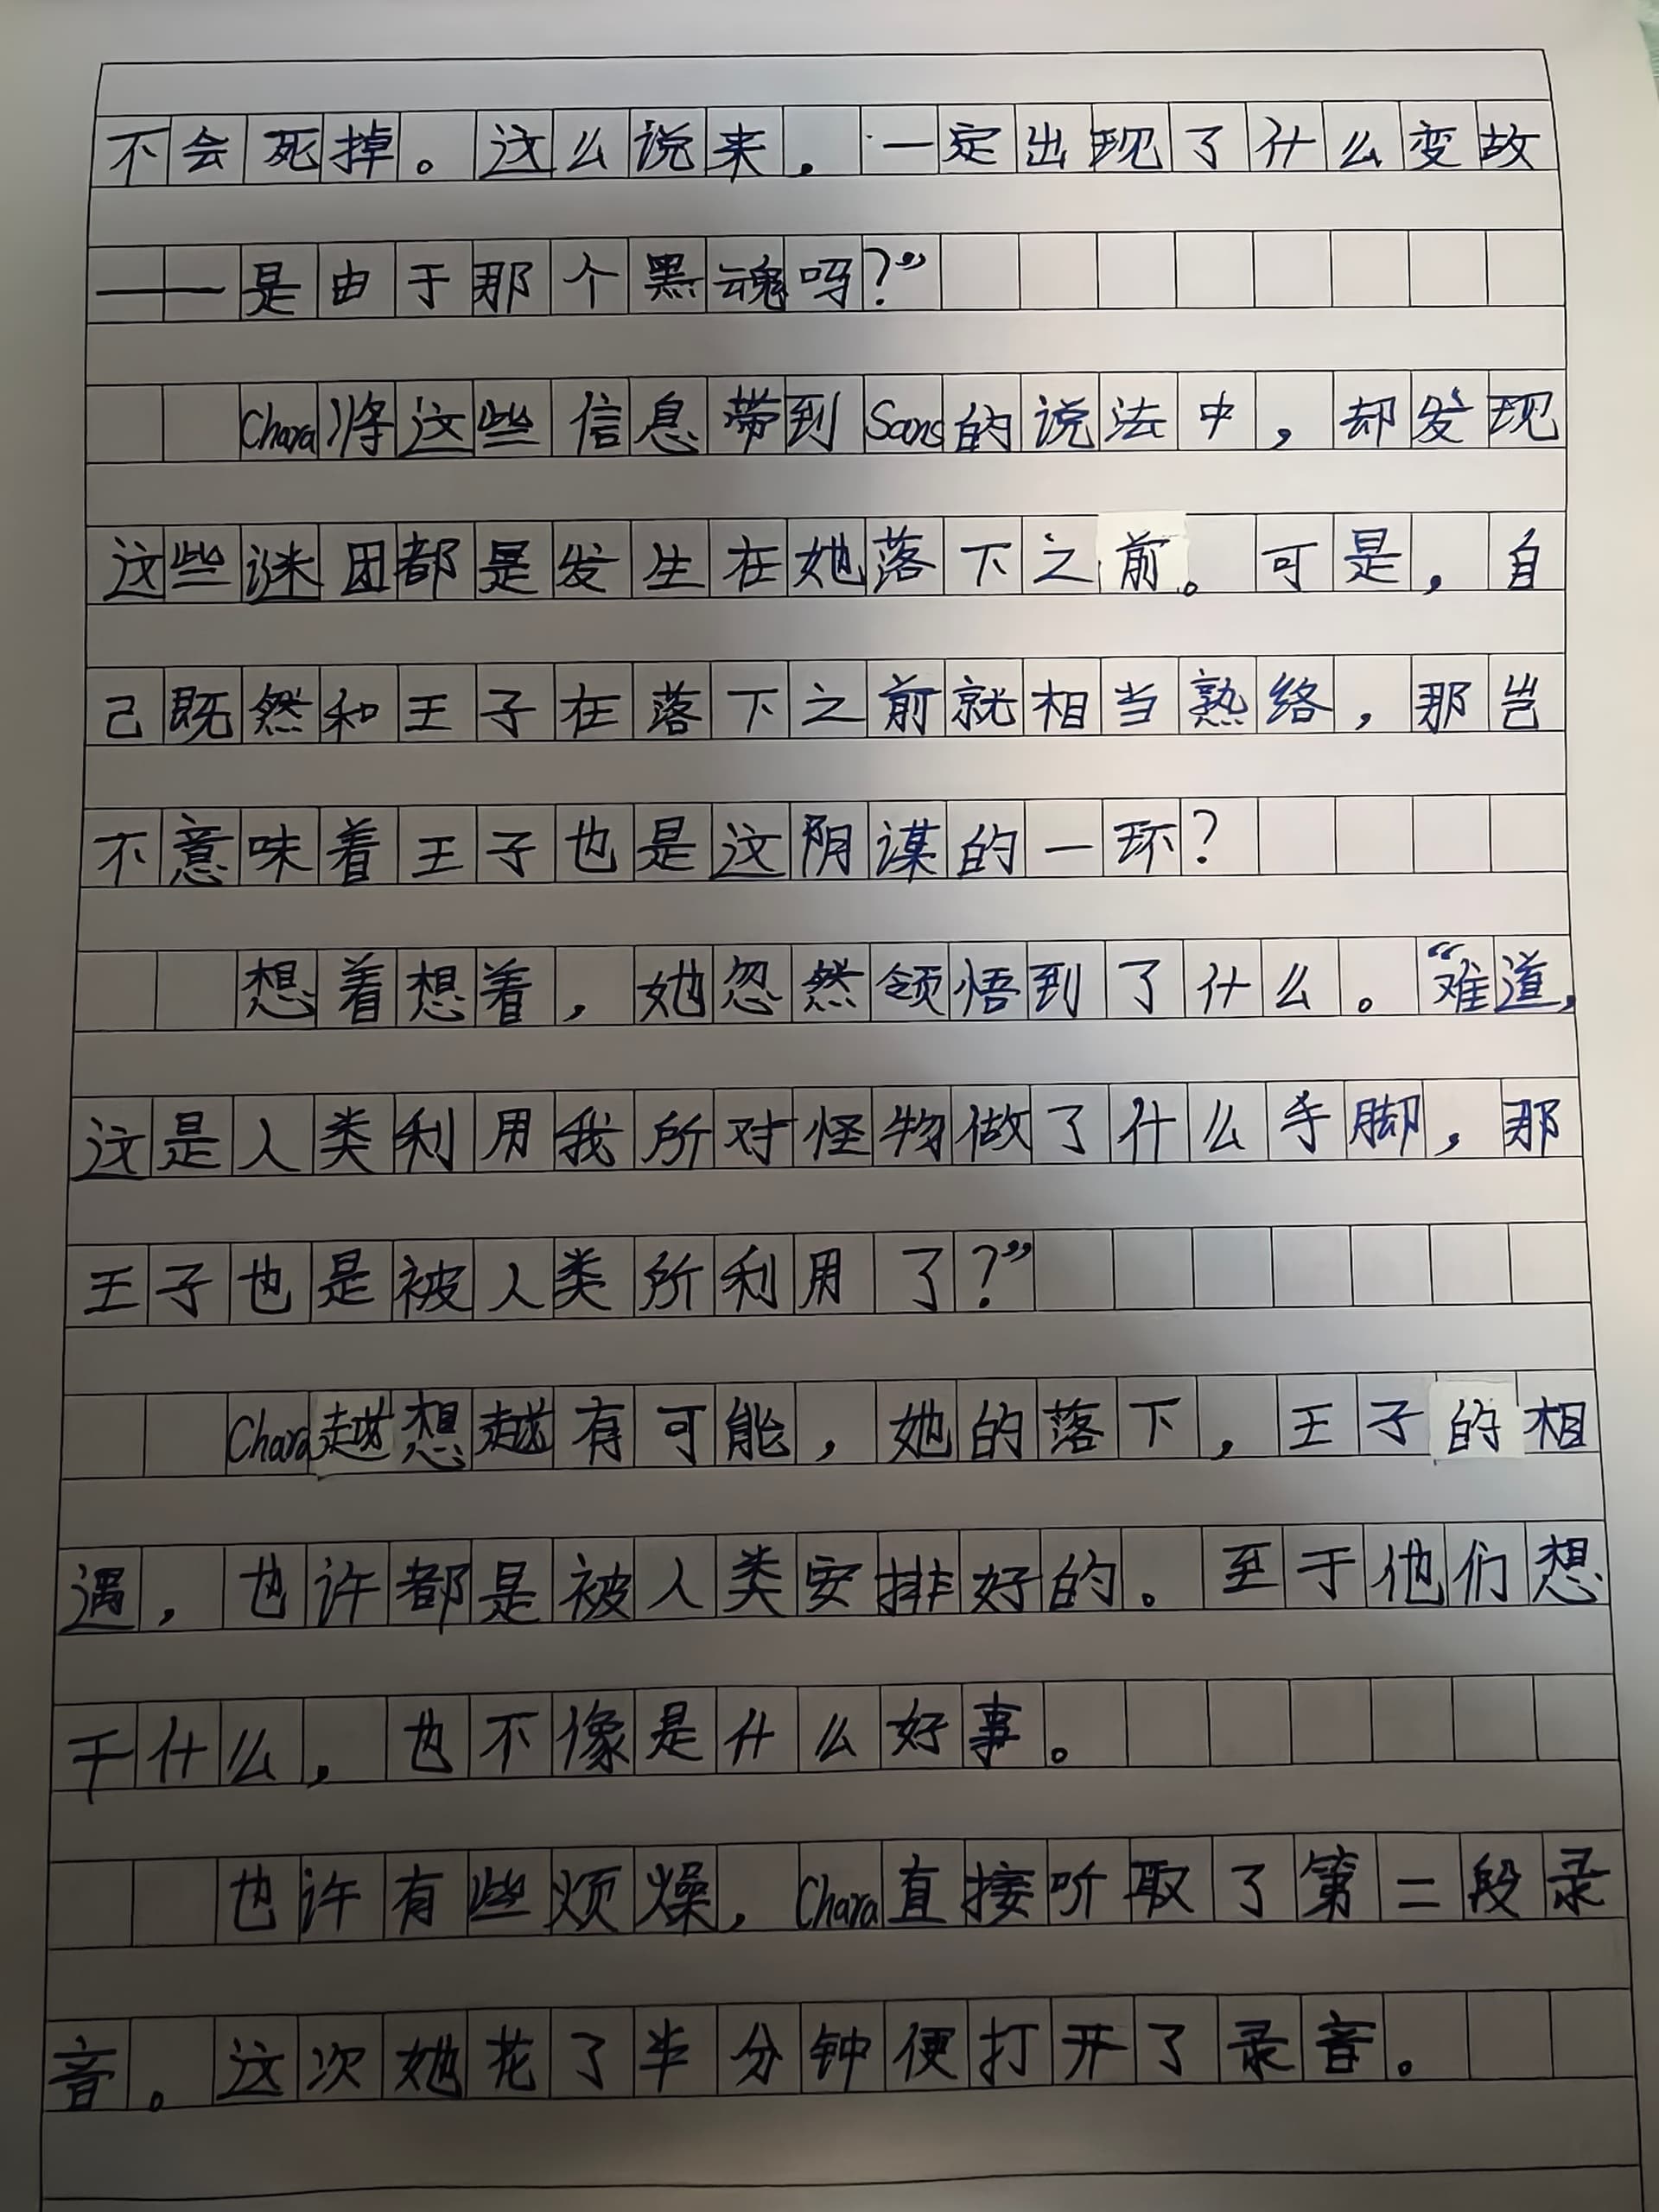 不会死掉。这么说来，一定出现了什么变故
——是由于那个黑魂吗？”
Chara将这些信息带到Sans的说法中，却发现
这些谜团都是发生在她落下之前。可是，自
己既然和王子在落下之前就相当熟络，那岂
不意味着王子也是这阴谋的一环？
想着想着，她忽然领悟到了什么。“难道，
这是人类利用我所对怪物做了什么手脚，那
王子也是被人类所利用了？”
Chara越想越有可能，她的落下，王子的相
遇，也许都是被人类安排好的。至于他们想
干什么，也不像是什么好事。
也许有些烦燥，Chara直接听取了第二段录
音。这次她花了半分钟便打开了录音。